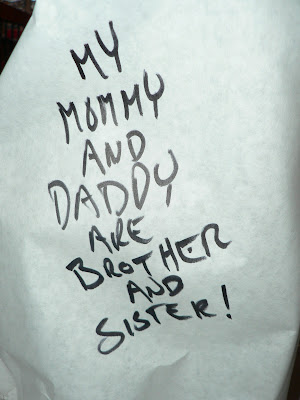 MY
MOMMY
AND
DADDY
ARE
BROTHER
AND
SISTER!